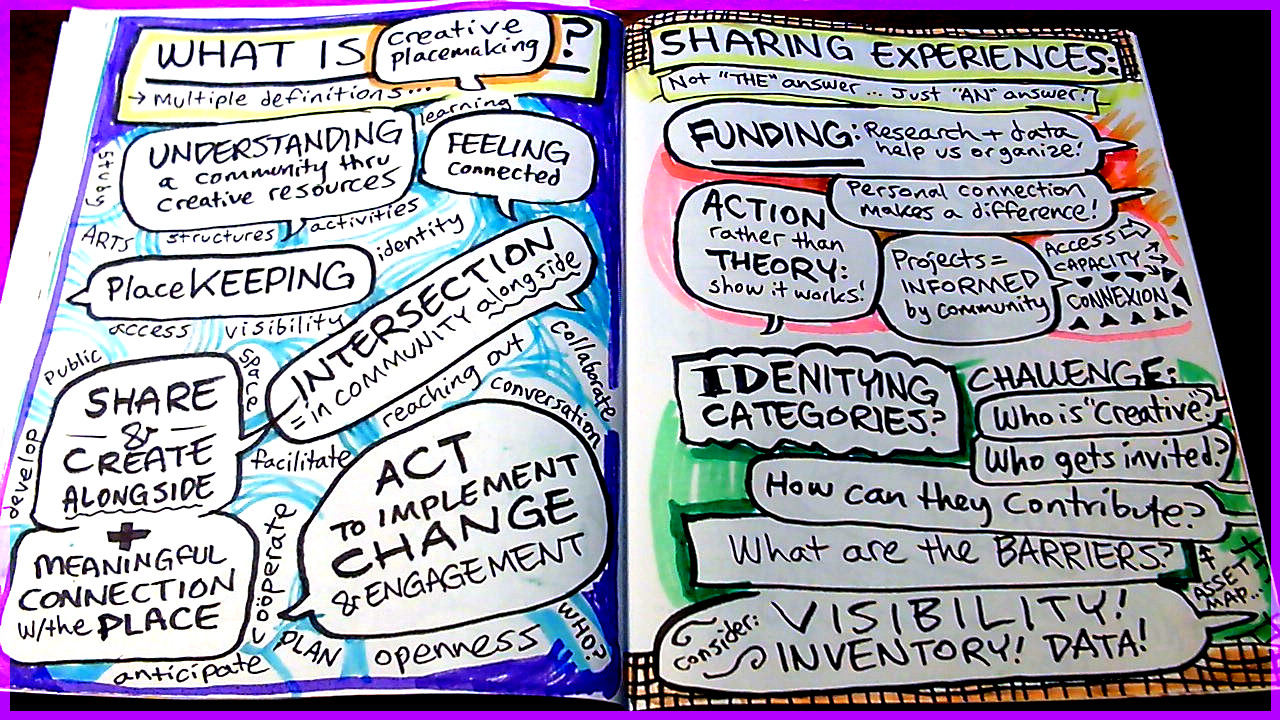 WHAT IS
creative
placemaking
?
→ Multiple definitions...
learning
study
UNDERSTANDING
a community thru
creative resources
FEELING
connected
ARTS
structures
activities
identity
PlaceKEEPING
access
visibility
INTERSECTION
= in COMMUNITY alongside
Public
space
reaching out
collaborate
conversation
develop
SHARE
&
CREATE
ALONGSIDE
facilitate
+
MEANINGFUL
CONNECTION
W/the PLACE
coöperate
ACT
TO IMPLEMENT
CHANGE
& ENGAGEMENT
anticipate
PLAN
openness
WHO?
SHARING EXPERIENCES:
Not "THE" answer... Just "AN" answer!
FUNDING: Research + data
help us organize!
Personal connection
makes a difference!
ACTION
rather than
THEORY:
show it works!
Projects =
INFORMED
by community
ACCESS
CAPACITY
CONNEXION
IDENITYING
CATEGORIES?
CHALLENGE:
Who is "Creative"?
Who gets invited?
How can they Contribute?
What are the BARRIERS?
ASSET
MAP...
Consider:
VISIBILITY!
INVENTORY! DATA!